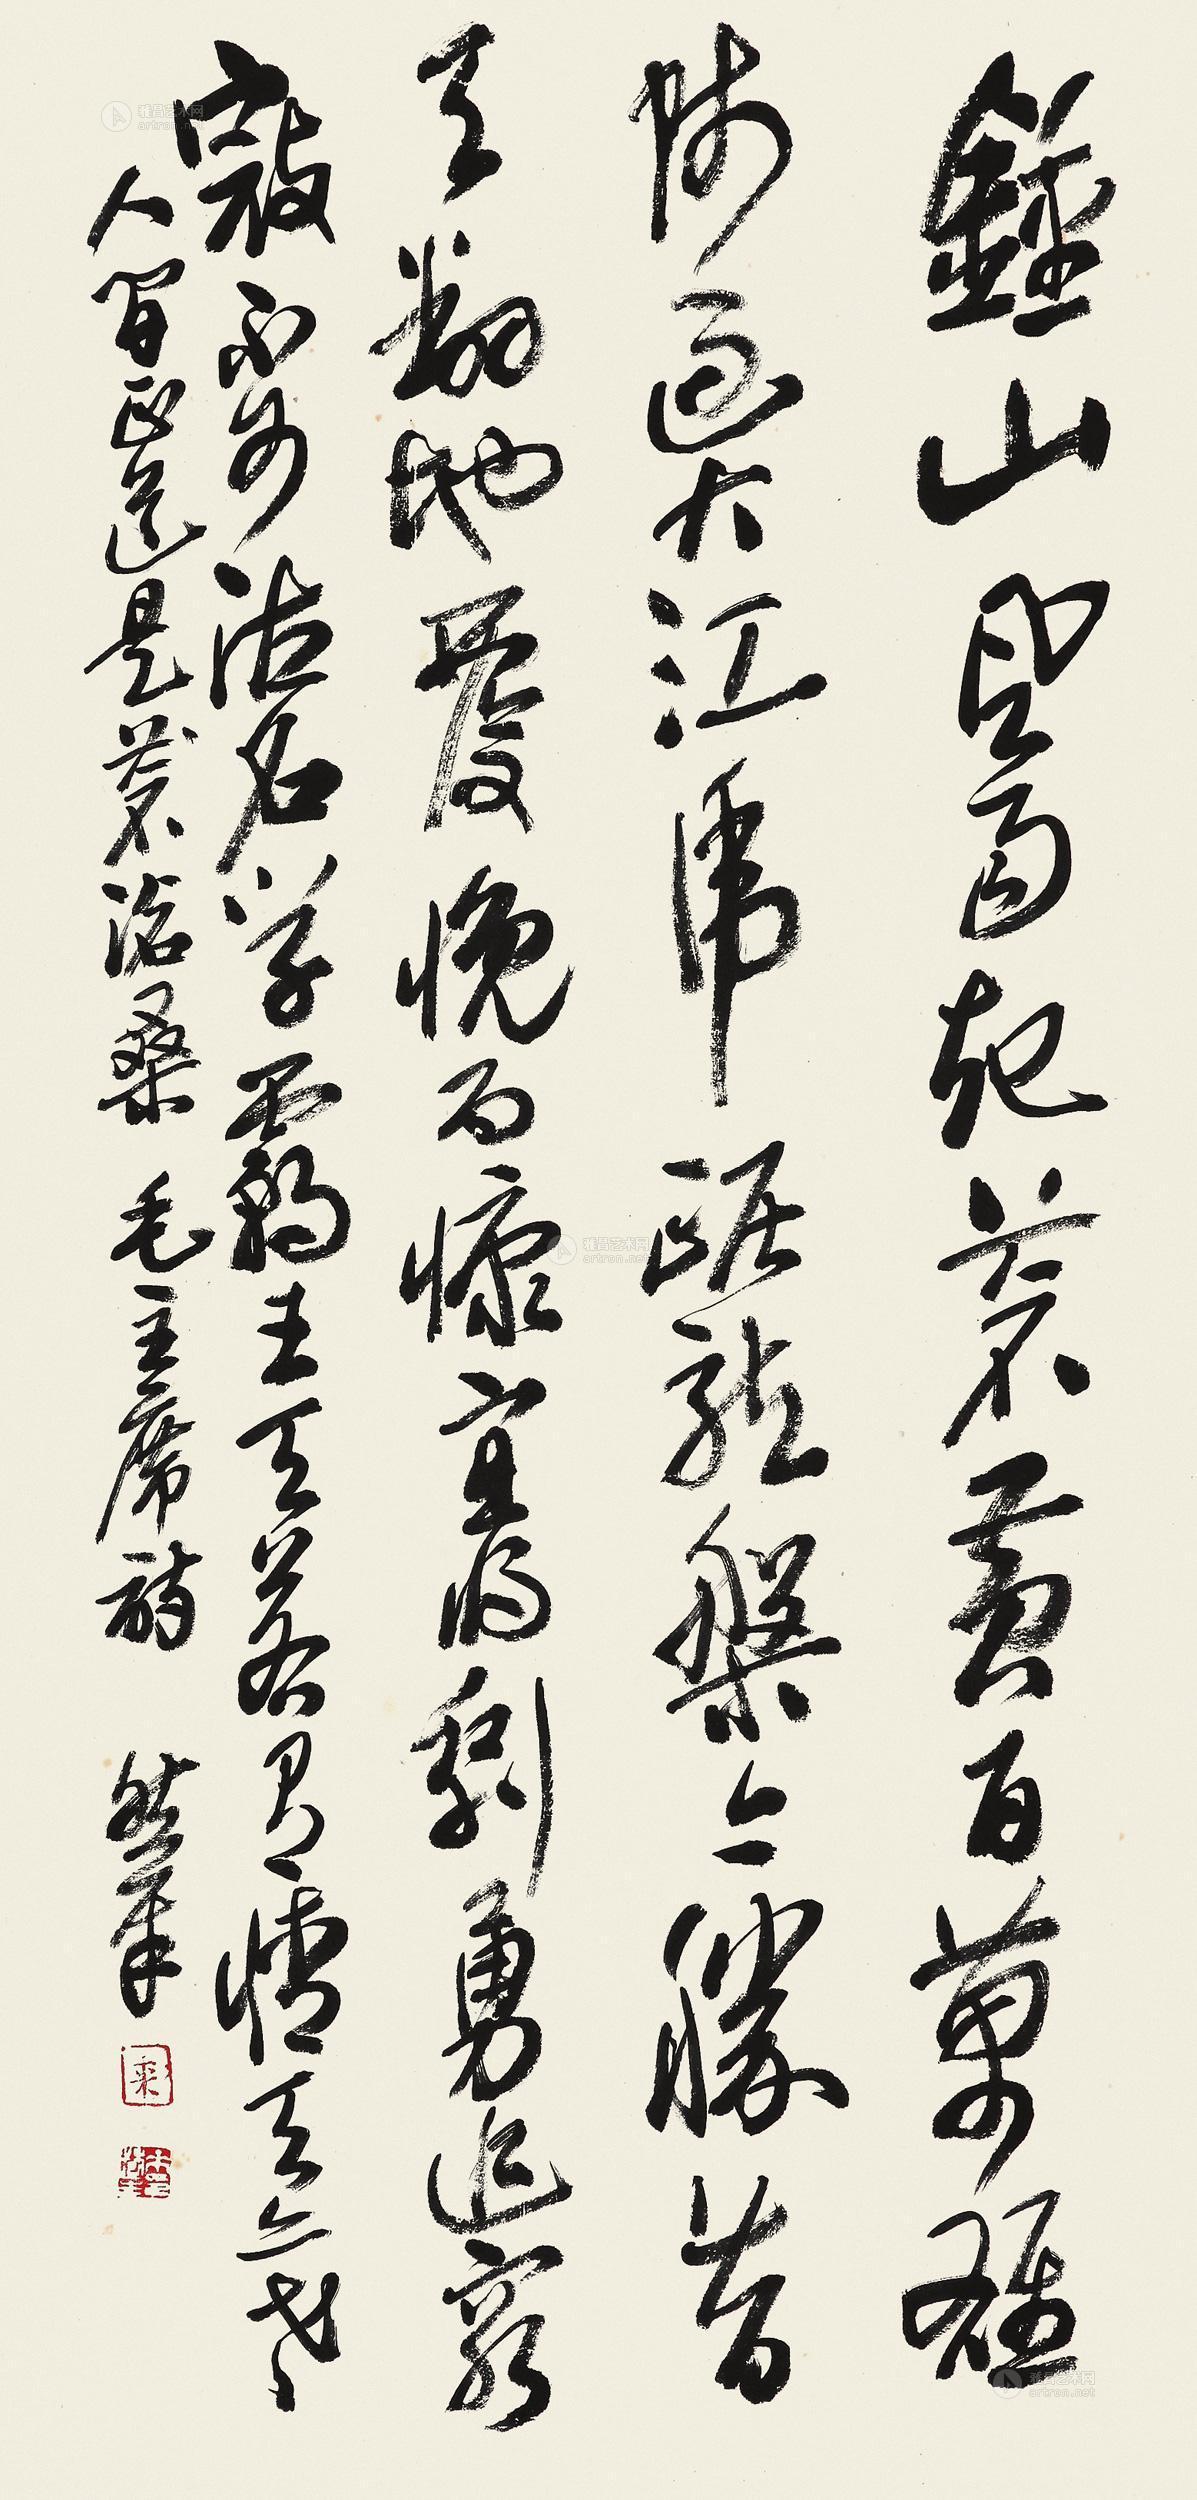 鍾山風雨起蒼黃百萬雄
師過大江虎踞龍槃今勝昔
天翻地覆慨而慷宜將剩勇追窮
寇不可沽名学霸王天若有情天亦老
人間正道是蒼滄桑 毛主席詩
雅昌艺术网
artron.net
雅昌艺术网
artron.net
雅昌艺术网
artron.net